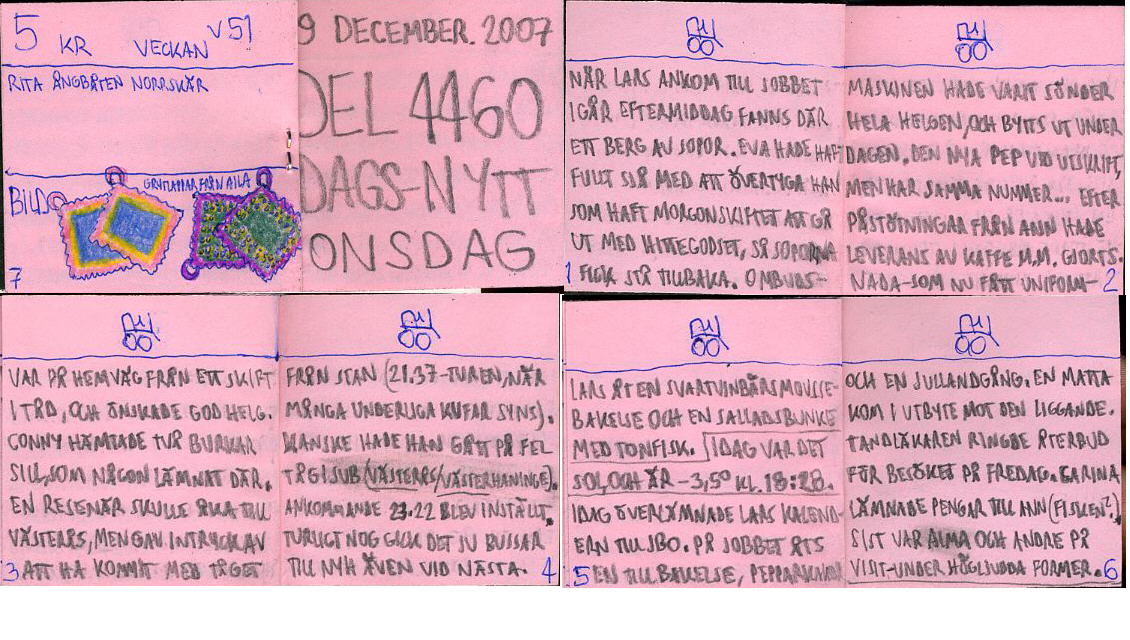 5 KR VECKAN V51
RITA ÅNGBÅTEN NORRSKÄR
GRYTLAPPAR FRÅN AILA
BILD
7
9 DECEMBER. 2007
DEL 4460
DAGS-NYTT
ONSDAG
NÄR LARS ANKOM TILL JOBBET
IGÅR EFTERMIDDAG FANNS DÄR
ETT BERG AV SOPOR. EVA HADE HAFT
FULLT SJÅ MED ATT ÖVERTYGA HAN
SOM HAFT MORGONSKIFTET ATT GÅ
UT MED HITTEGODSET, SÅ SOPORNA
FICK STÅ TILLBAKA. OMBUDS-
1
MASKINEN HADE VARIT SÖNDER
HELA HELGEN, OCH BYTTS UT UNDER
DAGEN. DEN NYA PEP VID UTSKRIFT,
MEN HAR SAMMA NUMMER... EFTER
PÅSTÖTNINGAR FRÅN ANN HADE
LEVERANS AV KAFFE M.M. GJORTS.
NADA-SOM NU FÅTT UNIFORM-
2
VAR PÅ HEMVÄG FRÅN ETT SKIFT
I TRD, OCH ÖNSKADE GOD HELG.
CONNY HÄMTADE TVÅ BURKAR
SILL, SOM NÅGON LÄMNAT DÄR.
EN RESENÄR SKULLE ÅKA TILL
VÄSTERÅS, MEN GAV INTRYCK AV
ATT HA KOMMIT MED TÅGET
3
FRÅN STAN (21.37-TUREN, NÄR
MÅNGA UNDERLIGA KUFAR SYNS).
KANSKE HADE HAN GÅTT PÅ FEL
TÅG I SUB (VÄSTERÅS/VÄSTERHANINGE).
ANKOMMANDE 23.22 BLEV INSTÄLLT.
TURLIGT NOG GICK DET JU BUSSAR
TILL NYH ÄVEN VID NÄSTA.
4
LARS ÅT EN SVARTVINBÄRSMOUSSE-
BAKELSE OCH EN SALLADSBUNKE
MED TONFISK. IDAG VAR DET
SOL, OCH ÄR -3,5° KL. 18:28.
IDAG ÖVERLÄMNADE LARS KALEND-
ERN TILL JBO. PÅ JOBBET ÅTS
EN TILL BAKELSE, PEPPARKAKOR
5
OCH EN JULLANDGÅNG. EN MATTA
KOM I UTBYTE MOT DEN LIGGANDE.
TANDLÄKAREN RINGDE ÅTERBUD
FÖR BESÖKET PÅ FREDAG. CARINA
LÄMNADE PENGAR TILL ANN (FISKEN?).
SIST VAR ALMA OCH ANDRE PÅ
VISIT-UNDER HÖGLJUDDA FORMER.
6